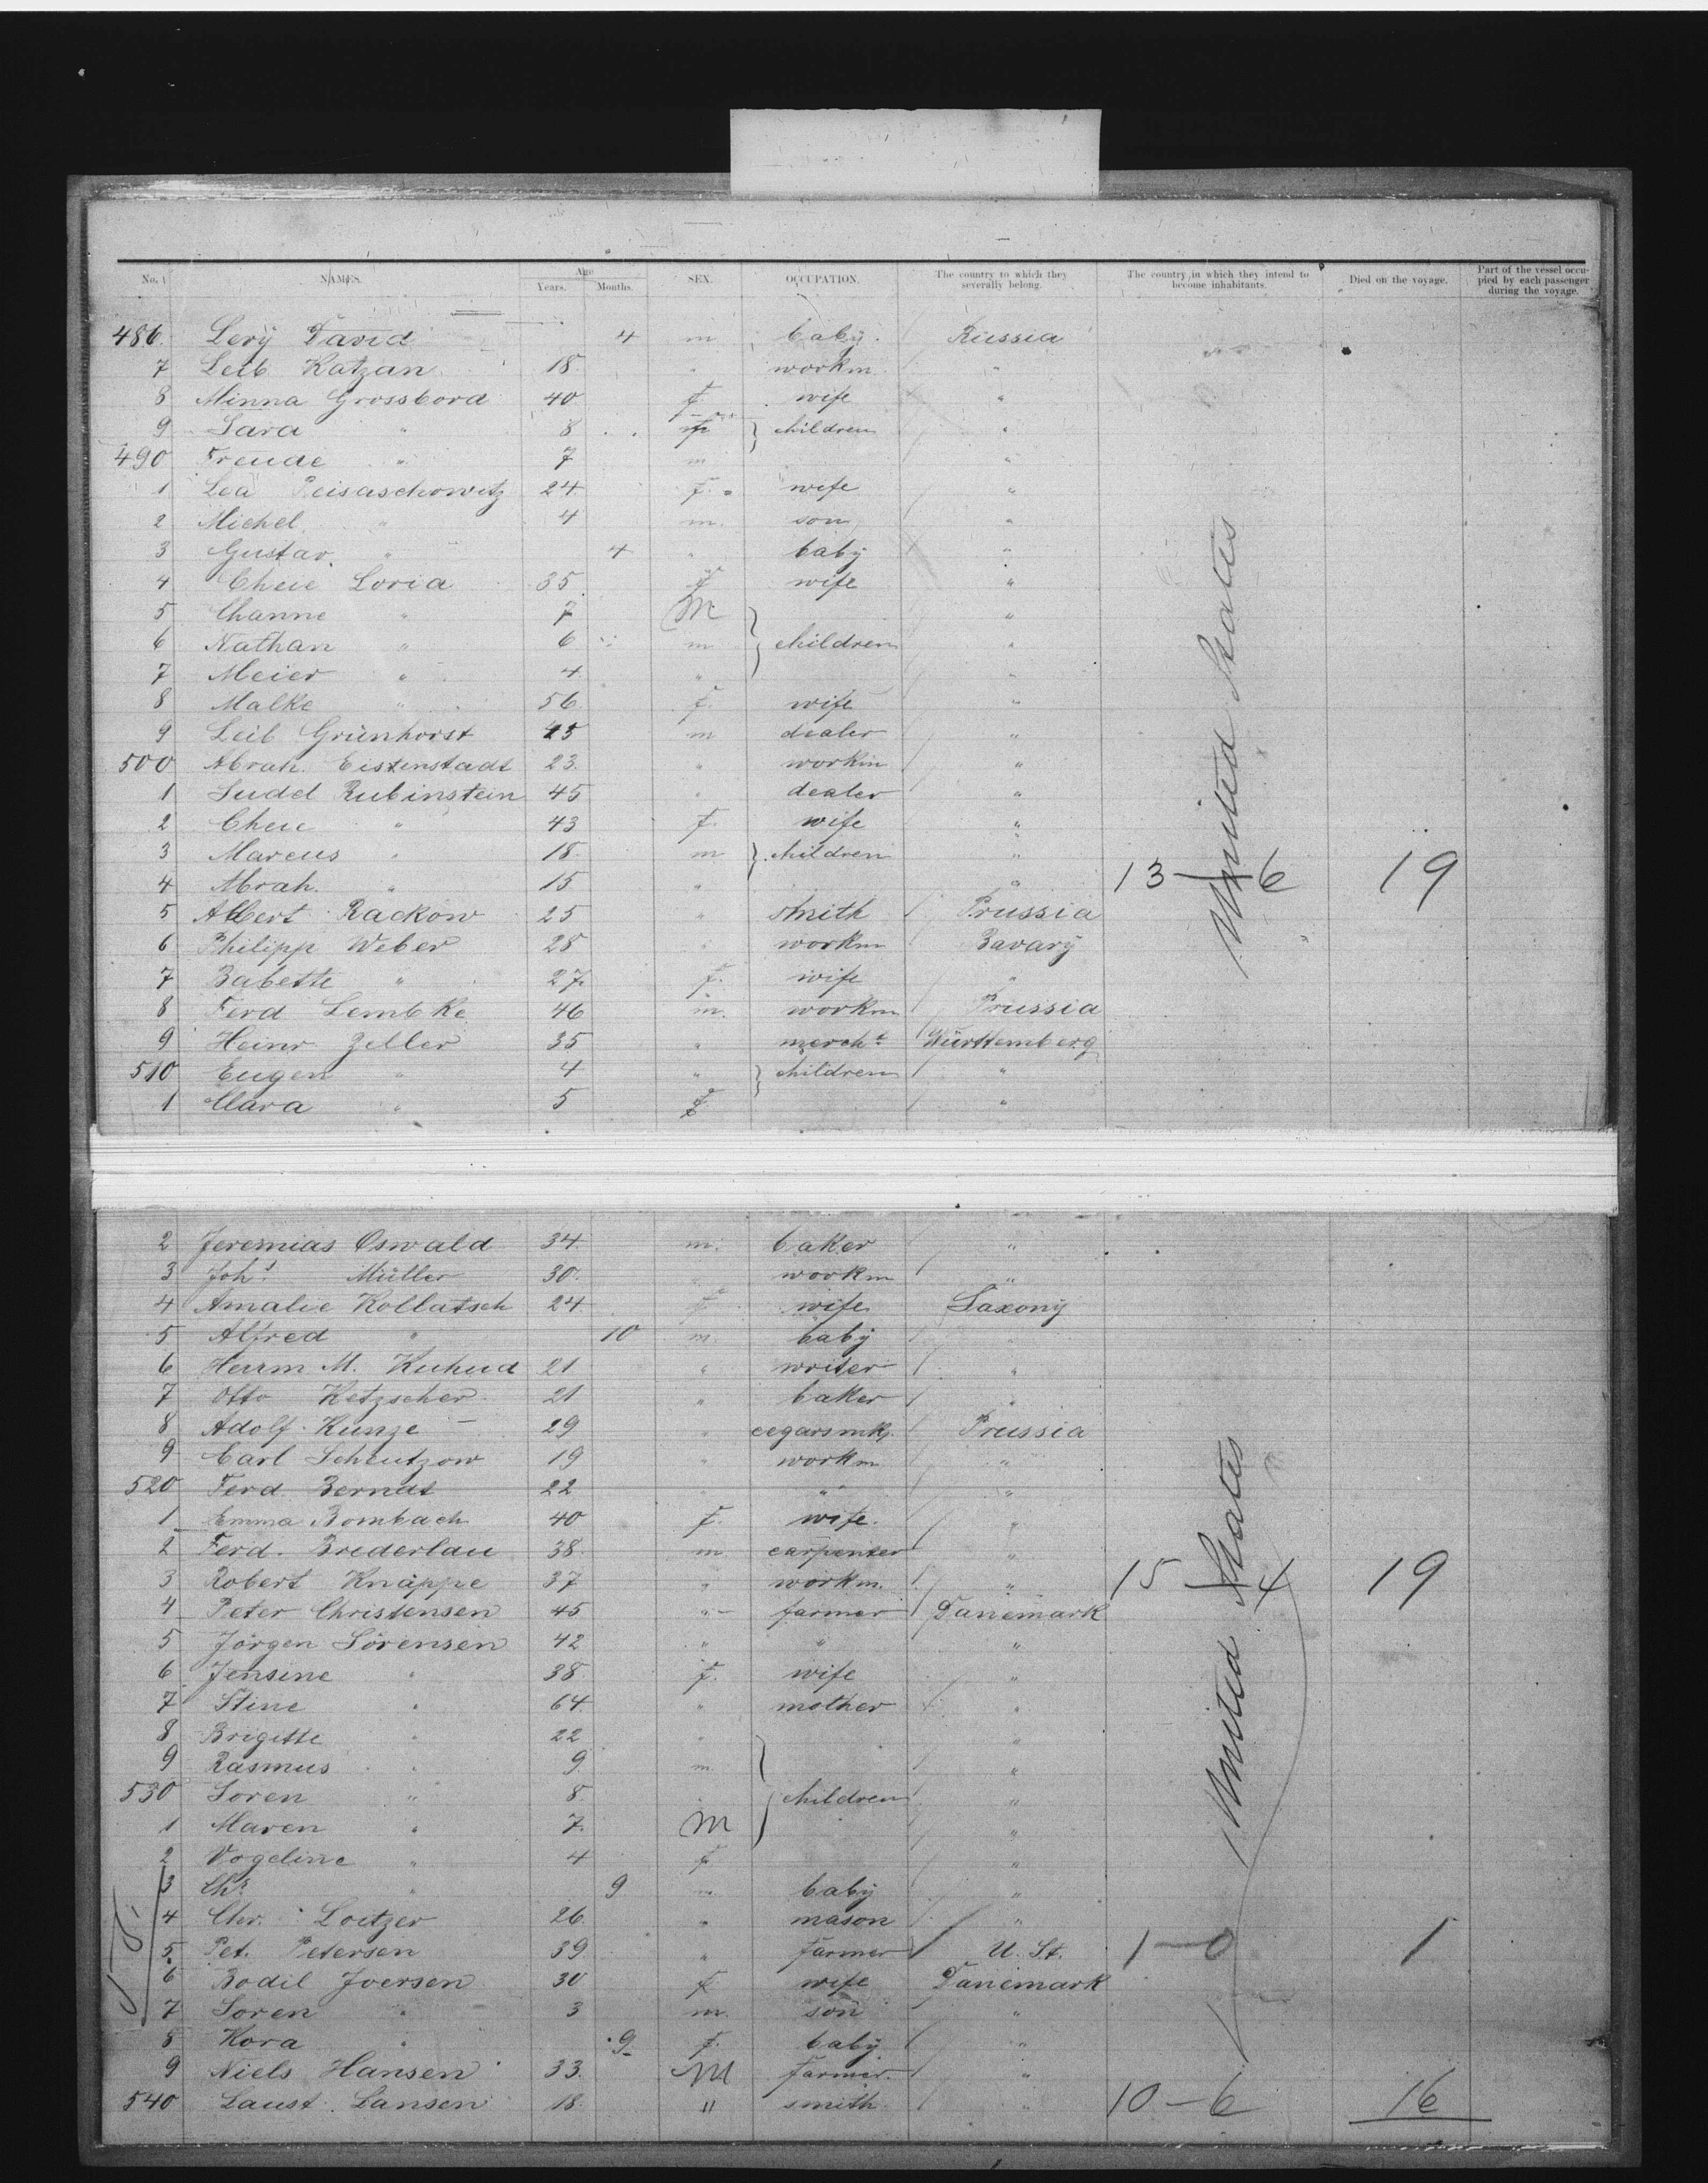 No. NAMES. Age Years. Months. SEX. OCCUPATION. The country to which they severally belong. The country in which they intend to become inhabitants. Died on the voyage. Part of the vessel occupied by each passenger during the voyage.
486. Levy David 4 m baby. Russia
7 Leib Katzan 18 " workm "
8 Minna Grossbord 40 f. wife "
9 Sara " 8 f } children "
490 Freude " 7 m "
1 Lea Reisaschowitz 24 f. wife "
2 Michel " 4 m. son "
3 Gustav. " 4 " baby "
4 Cheie Loria 35. f wife "
5 Channe " 7 M "
6 Nathan " 6 m } children "
7 Meier " 4 " "
8 Malke " 56 f. wife "
9 Leib Grünhorst 45 m dealer "
500 Abrah. Eistenstadt 23. " workm "
1 Judel Rubinstein 45 " dealer "
2 Cheie " 43 f. wife "
3 Marcus " 18. m } children "
4 Abrah. " 15 " " 13—6 19
5 Albert Rackow 25 " smith Prussia
6 Philipp Weber 28 " workm Bavary
7 Babette " 27. f. wife "
8 Ferd Lembke 46 m. workm Prussia
9 Heinr. Zeller 35 " mercht Württemberg
510 Eugen " 4 " } children "
1 Clara " 5 f "
United States
2 Jeremias Oswald 34. m. baker "
3 Johs. Müller 30. workm "
4 Amalie Kollatsch 24. f wife Saxony
5 Alfred " 10 m. baby
6 Herrm M. Kuhud 21 " writer "
7 Otto Ketzscher 21 " baker "
8 Adolf Kunze 29 " cegarsmk. Prussia
9 Carl Scheutzow 19 " workm "
520 Ferd. Berndt 22 " " "
1 Emma Bombach 40 f. wife. "
2 Ferd. Brederlau 38. m carpenter "
3 Robert Knäppe 37 " workm. " 15—4 19
4 Peter Christensen 45 " farmer Danemark
5 Jörgen Sörensen 42 " " "
6 Jensine " 38. f. wife "
7 Stine " 64. " mother "
8 Brigitte " 22 " "
9 Rasmus " 9. m. "
530 Soren " 8. } children "
1 Maren " 7. M "
2 Vogeline " 4 f "
3 Chr " 9 m baby "
4 Chr. Loetzer 26. " mason "
5. Pet. Petersen 39 " farmer U. St. 1—0 1
6 Bodil Joersen 30 f. wife Danemark
7 Soren " 3 m. son "
8 Kora " 9 f. baby "
9 Niels Hansen 33. M farmer. "
540 Laust. Lansen 18. " smith " 10—6 16
United States